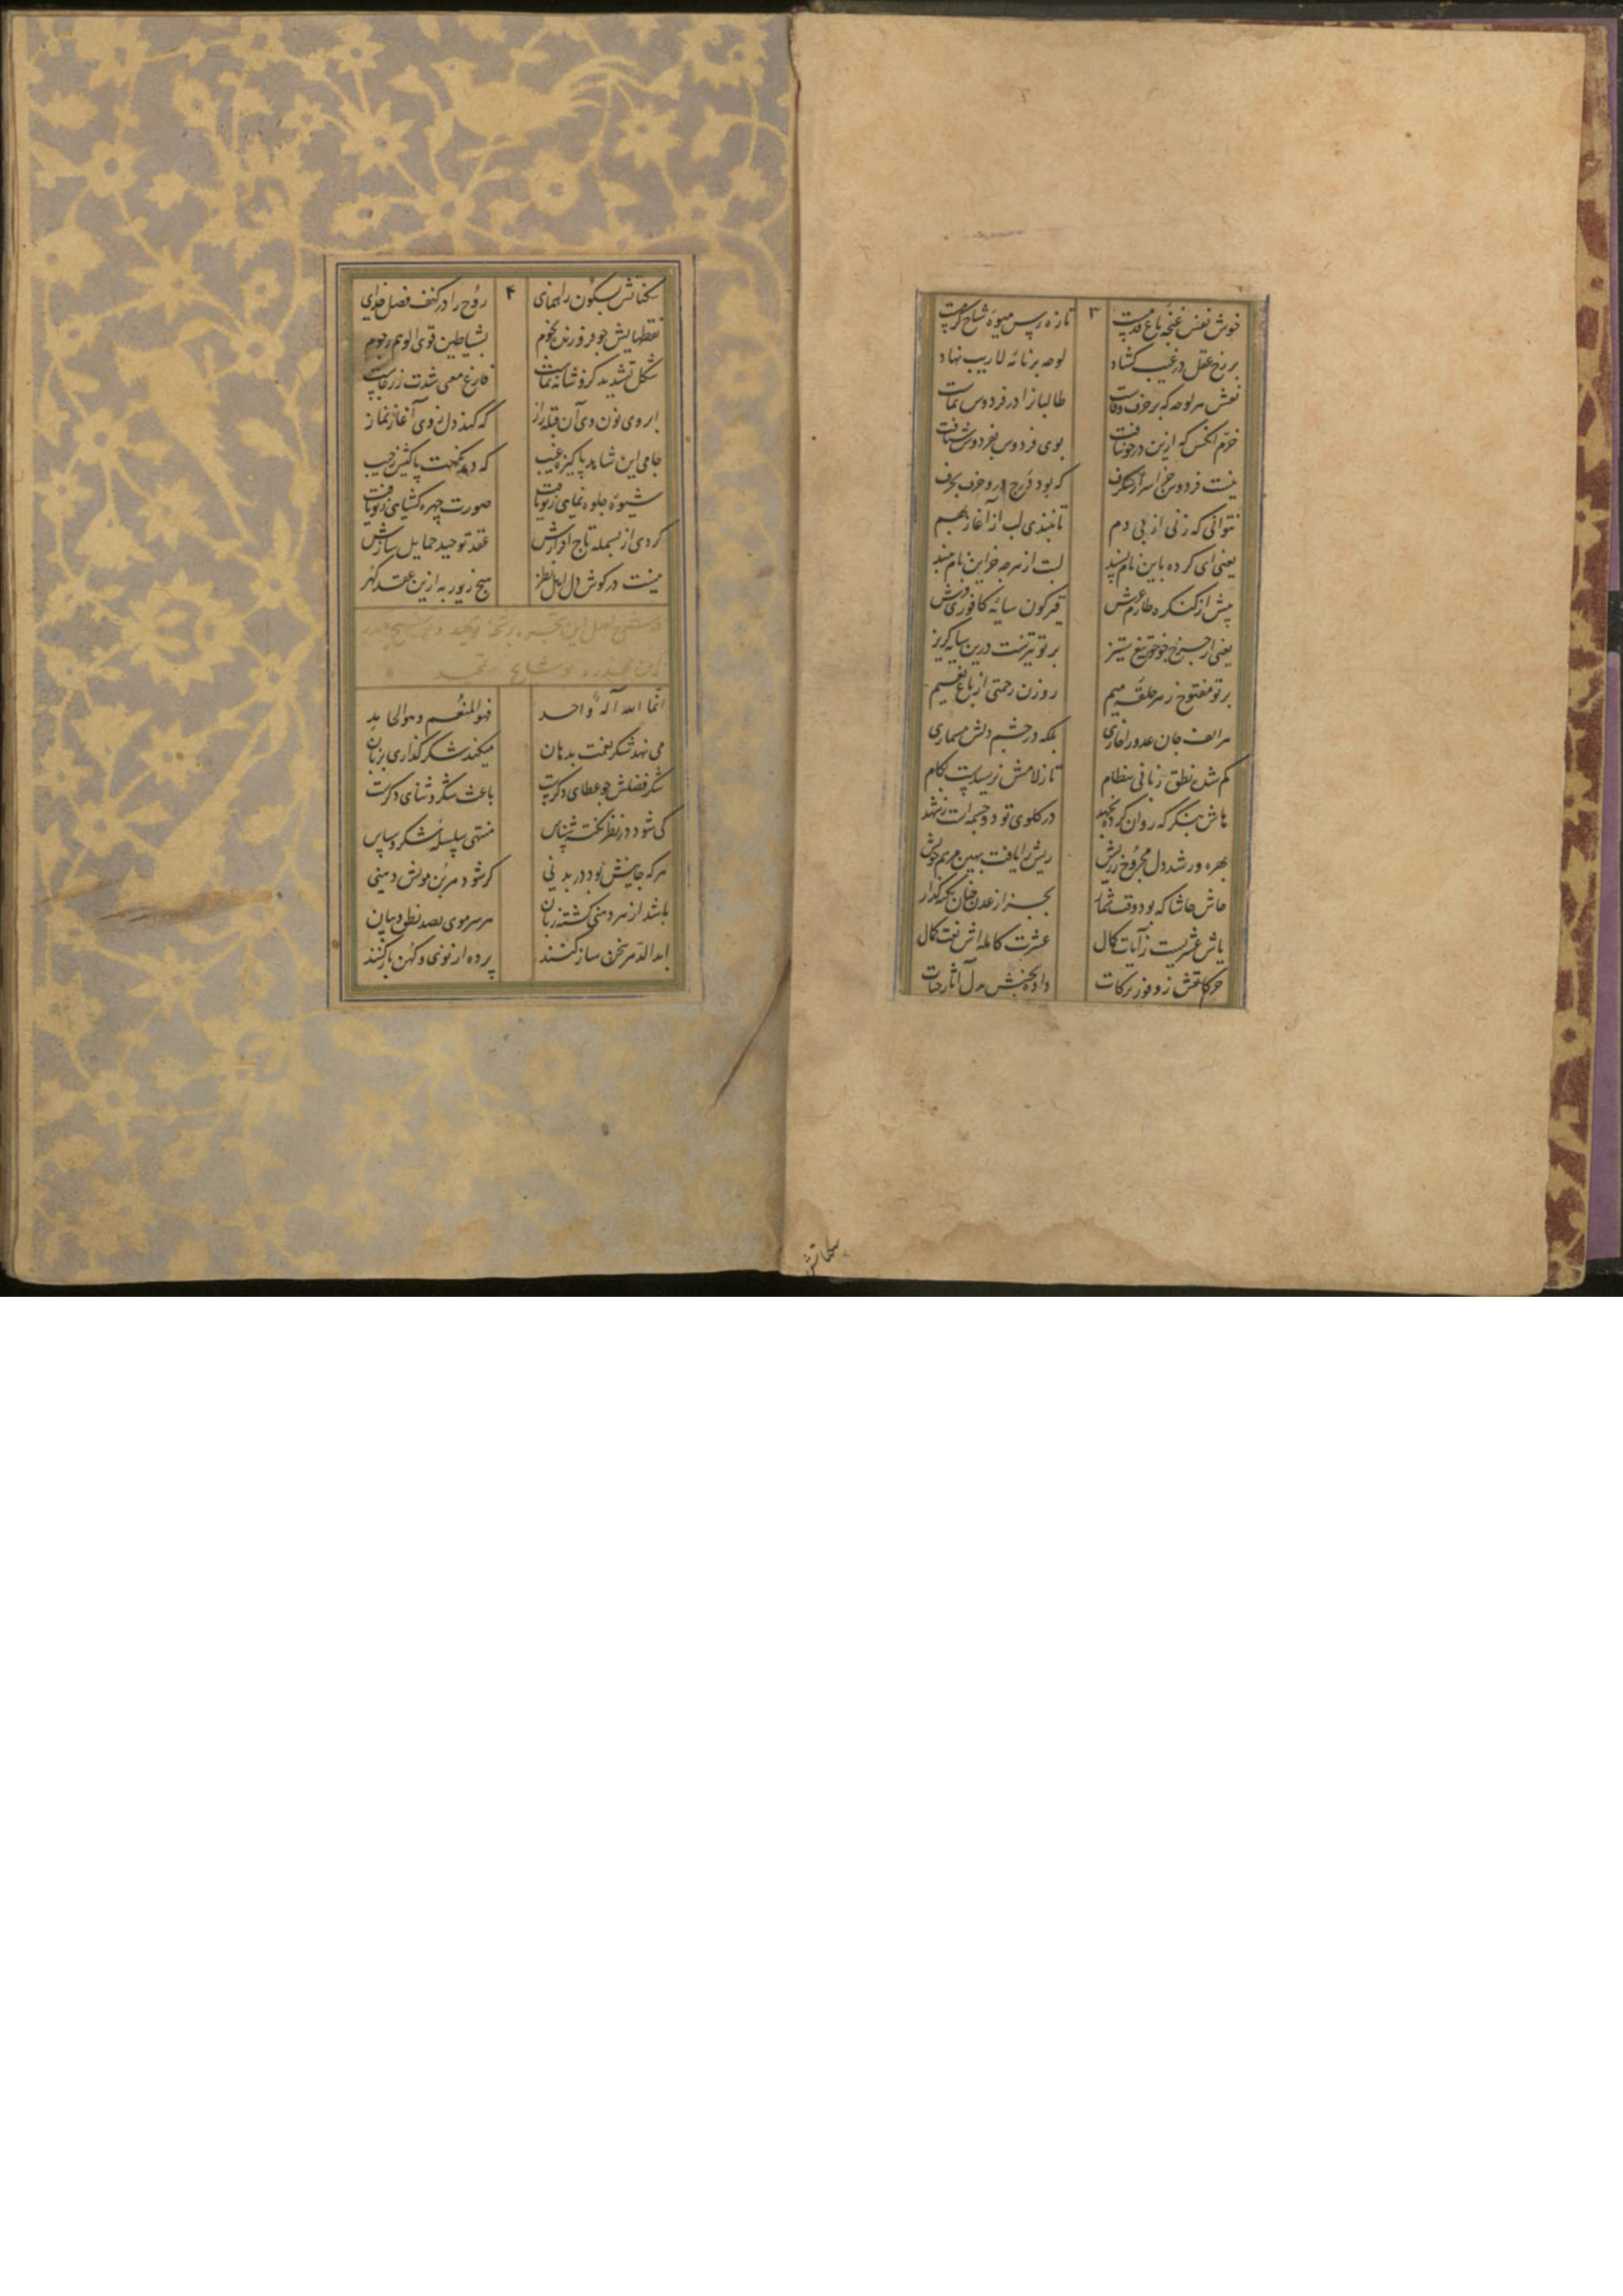 ۳
خوش نفس غنچه باغ قدمست تازه رس میوه شاخ کرمست
بر رخ عقل در غیب کشاد لوحه بر نامه لاریب نهاد
نقش هر لوحه که بر حرف وفاست طالبانرا در فردوس نماست
خرم آنکس که ازین در چو شتافت بوی فردوس بفردوس شتافت
نیست فردوس جز اسرار شگرف که بود درج درو حرف بحرف
نتوانی که زنی از بی دم تا نبندی لب از آغاز بهم
یعنی ای کرده باین نام پسند لب از هر چه جز این نام ببند
پیش از کنکره طارم عرش قیرکون سایه کافوری فرش
یعنی از چرخ چو خور تیغ ستیز بر تو تیزست درین سایه کریز
بر تو مفتوح ز هر حلقه میم روزن رحمتی از باغ نعیم
هر الف جان عدو را خاری بلکه در چشم دلش مسماری
کم شدن نطق زبانی بنظام تا ز لامش نرسیدست بکام
هاش بنکر که روان کرده بجهد در کلوی تو دو چشمه است ز شهد
بهره ور شد دل مجروح ز ریش ریش را یافت بهین مرهم خویش
حاش حاشا که بود وقت شمار بجز از عدن جنان بحر کذار
یاش عشریست ز آیات کمال عشرت کامله اش نعت کمال
حرکاتش ز وفور برکات داده جنبش بدل آثار حیات
سکناتش
۴
سکناتش بسکون راهنمای روح را در کنف فضل خدای
نقطهایش چو فروزنده نجوم بشیاطین قوی الوهم رجوم
شکل تشدید کزو شانه نماست
ابروی نون وی آن قبله راز که کند دل ز وی آغاز نماز
جامی این شاهد پاکیزه غیب که دمد نکهت پاکیش ز جیب
شیوه جلوه نمایی ز تو یافت صورت چهره کشایی ز تو یافت
کردی از بسمله تاج افرازش عقد توحید حمایل سازش
نیست در کوش دل اهل نظر هیچ زیور به ازین عقد کهر
انما الله اله واحد فهو المنعم و هو الحامد
می نهد شکر نعمت بدهان میکند شکر کذاری بزبان
شکر فضلش چو عطای دکرست باعث شکر و ثنای دکرست
کی شود در نظر نکته شناس منتهی سلسله شکر و سپاس
هر که جا بخشش بود در بدنی کر شود هر بن مویش دهنی
باشد از هر دهنی کشته زبان هر سر موی بصد نطق و بیان
ابد الدهر سخن ساز کنند پرده از نو نی و کهن باز کنند